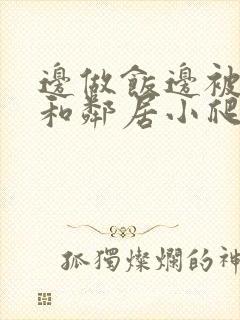 邊做飯邊被
和鄰居小爬
孤獨燦爛的神